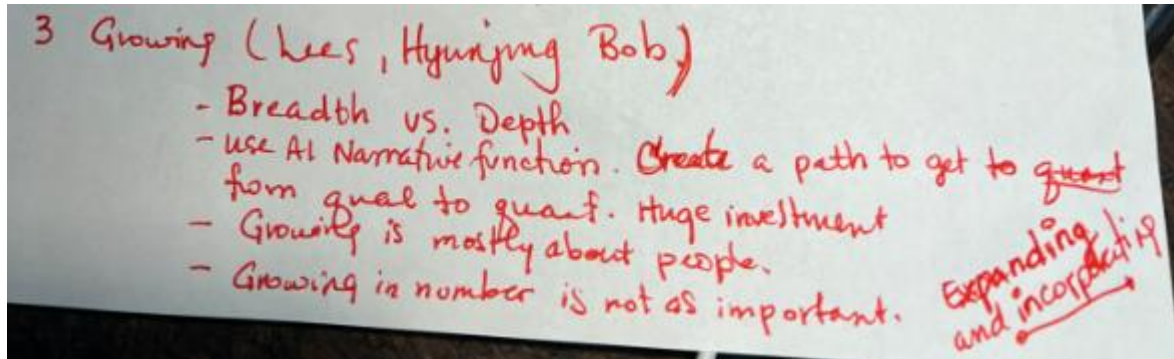 3 Growing (Lees, Hyunjing Bob)
- Breadth vs. Depth
- use AI Narrative function. Create a path to get to quant
from qual to quant. Huge investment
- Growing is mostly about people.
- Growing in number is not as important.
Expanding
and incorporating